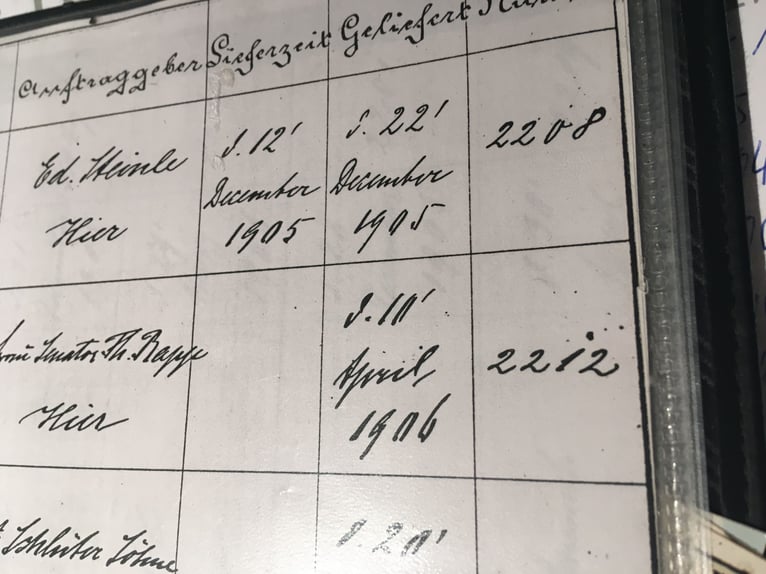 Auftraggeber Lieferzeit Geliefert
Ed. Steinle
Hier
d. 12'
December
1905
d. 22'
December
1905
2208
Senator Th. Rapp
Hier
d. 10'
April
1906
2212
Schlüter Söhne
d. 20'